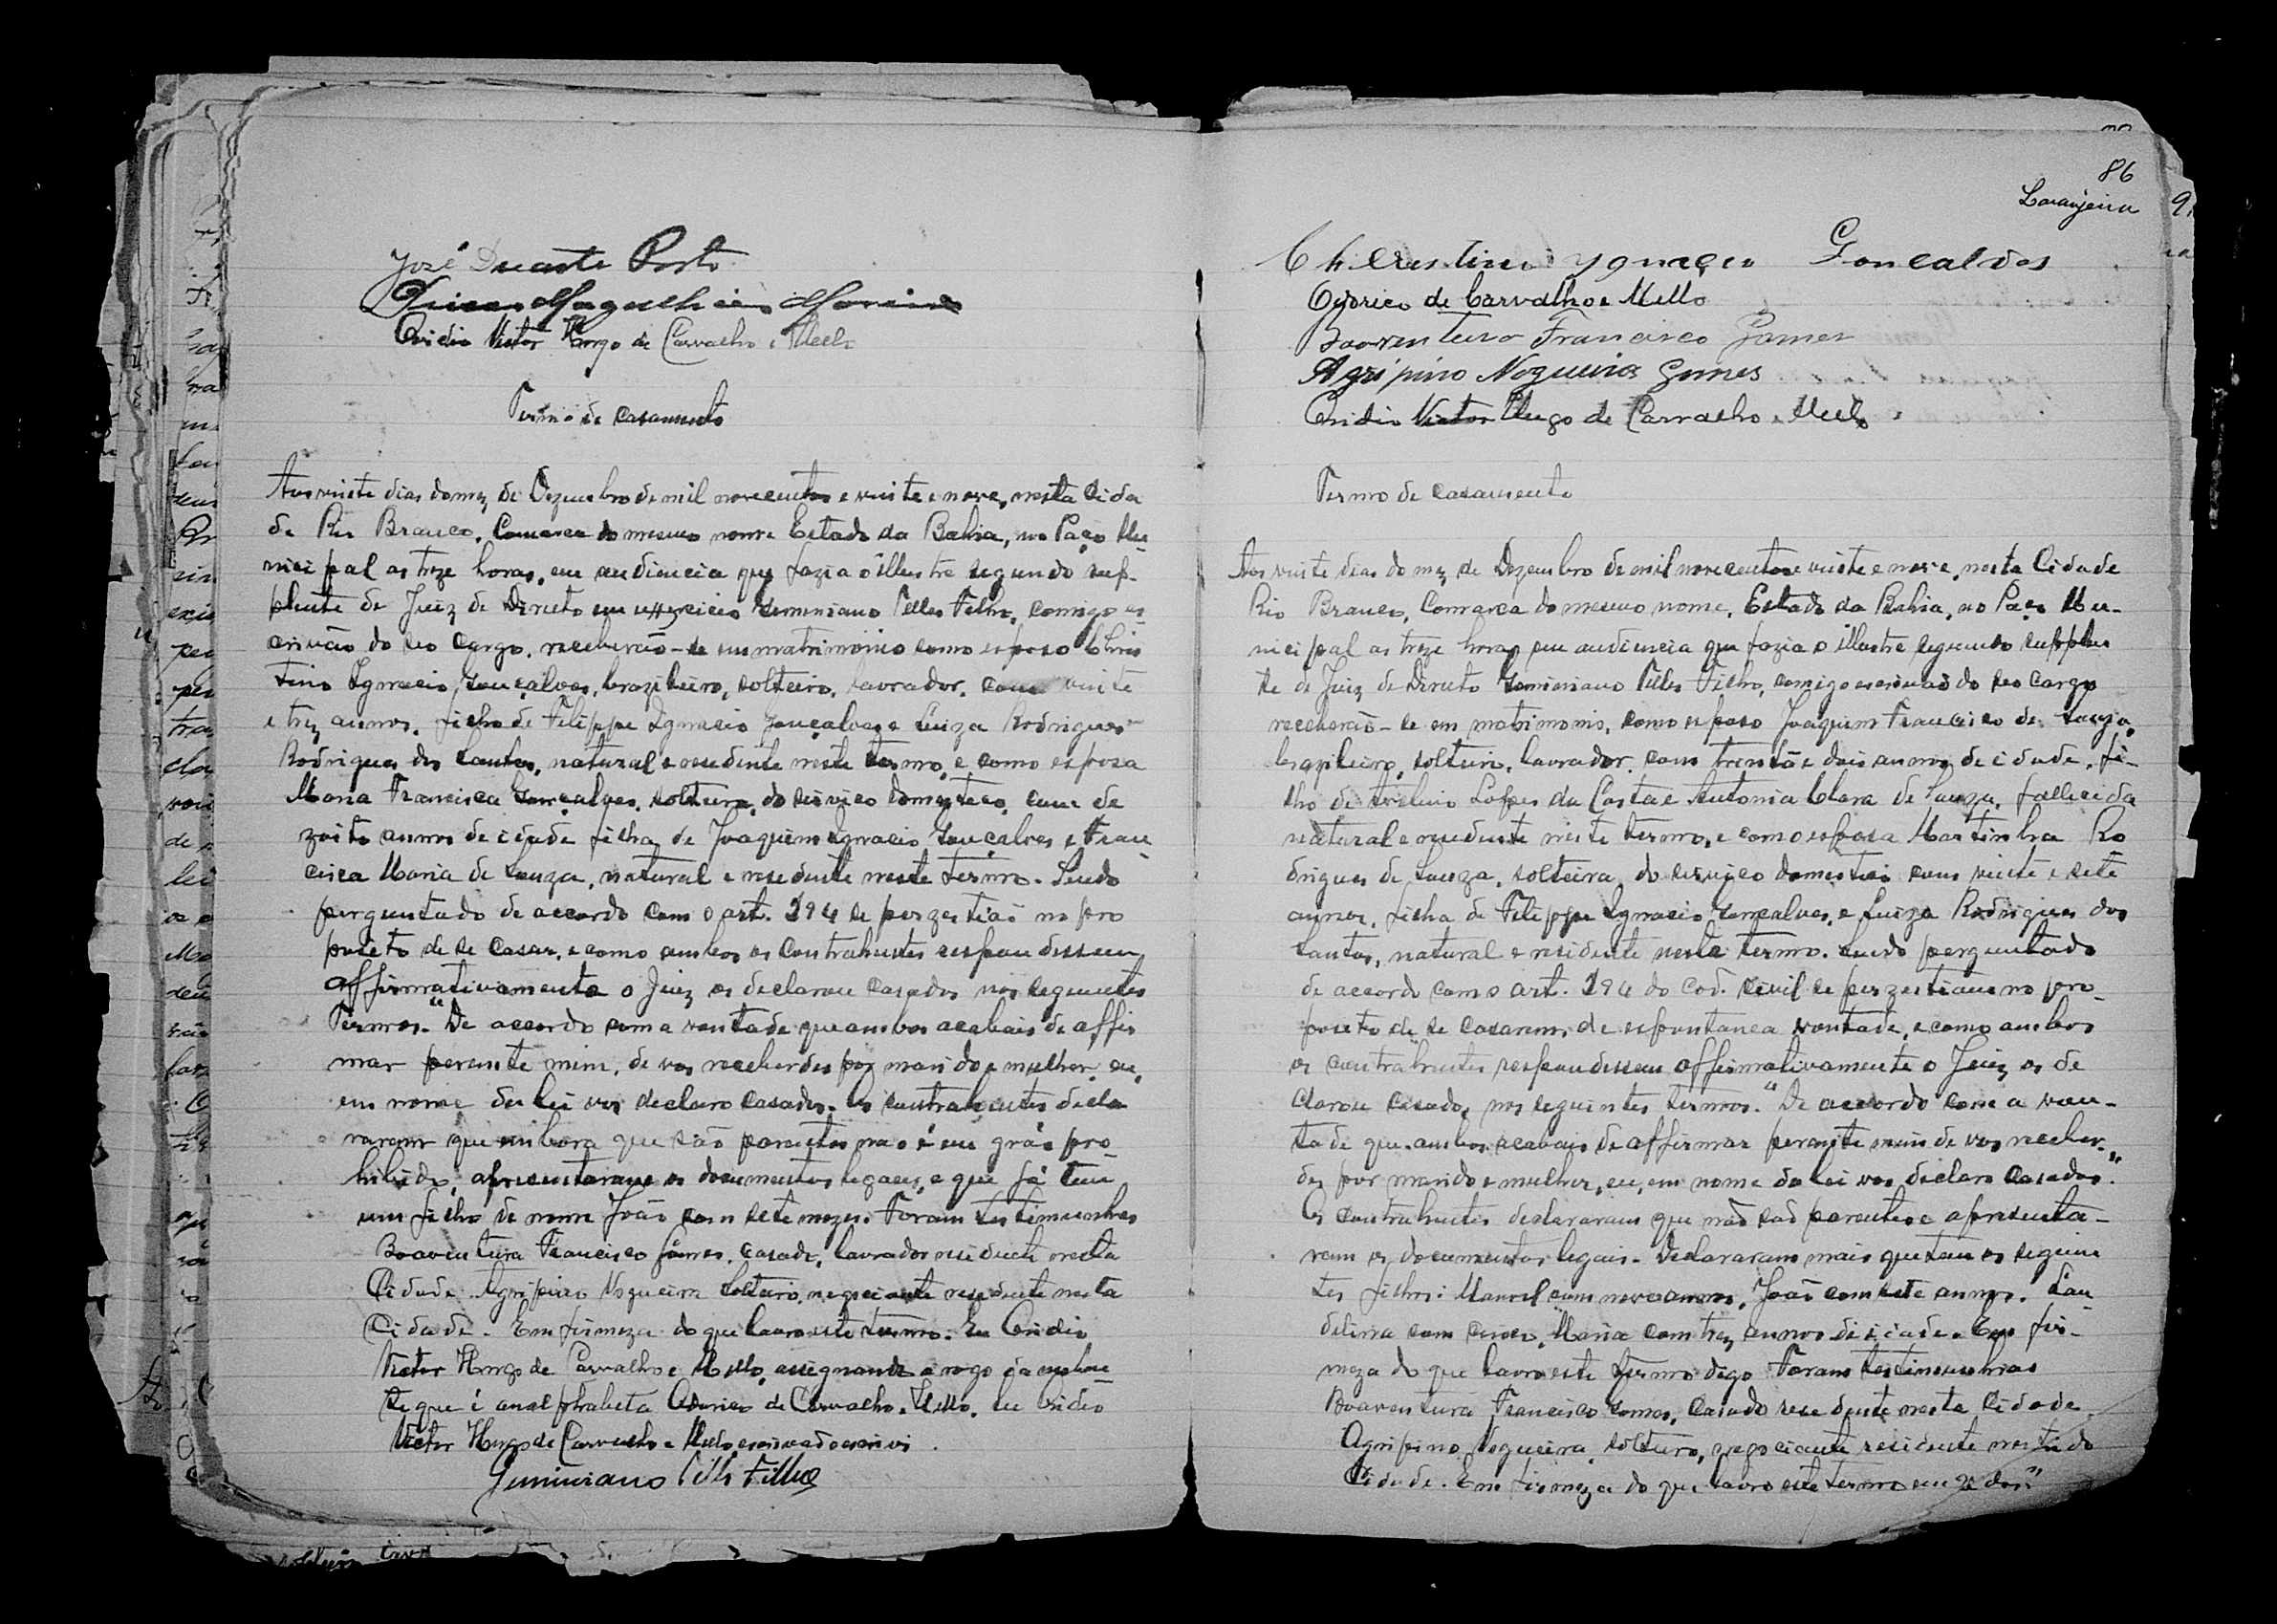 José Duarte Porto
Ovidio Victor Hugo de Carvalho e Mello
Termo de casamento
Aos vinte dias do mez de Dezembro de mil novecentos e vinte e nove, nesta Cida
de Rio Branco, Comarca do mesmo nome Estado da Bahia, no Paço Mu-
nicipal as treze horas, em audiencia que fazia o illustre segundo sup-
plente de Juiz de Direito em exercicio Geminiano Telles Filho, comigo es-
crivão do seo cargo, receberão-se em matrimonio como esposo Chris
tino Ignacio Gonçalves, brazileiro, solteiro, lavrador, com vinte
e trez annos, filho de Filippe Ignacio Gonçalves e Luiza Rodrigues
Rodrigues dos Santos, natural e residente neste termo, e como esposa
Maria Francisca Gonçalves, solteira, do serviço domestico, com de
zoito annos de idade filha de Joaquim Ignacio Gonçalves e Fran
cisca Maria de Souza, natural e residente neste termo. Sendo
perguntado de accordo com o art. 194 se perzestião no pro
posito de se casar, e como ambos os contrahentes respondessem
affirmativamente o Juiz os declarou casados nos seguentes
Termos. "De accordo com a vontade que ambos acabais de affir
mar perante mim, de vos receberdes por marido e mulher, eu,
em nome da lei vos declaro casados. Os contrahentes decla
raram que embora que são parentes não é em gráo pro-
hibido, apresentaram os documentos legaes, e que já tem
um filho de nome João com sete mezes. Foram testimunhas
Boaventura Francisco Gomes, casado, lavrador residente nesta
Cidade. Agripino Nogueira solteiro, negociante residente nesta
Cidade. Em firmeza do que lavro este termo. Eu Ovidio
Victor Hugo de Carvalho e Mello, assegnando a rogo da
que é analphabeta Odorico de Carvalho e Mello. Eu Ovidio
Victor Hugo de Carvalho e Mello, escrivão o escrivi
Geminiano Telles Filho
86
Laranjeira
Christino Ygnacio Goncalves
Odorico de Carvalho e Mello
Boaventura Francisco Gomes
Agripino Nogueira Gomes
Ovidio Victor Hugo de Carvalho e Mello
Termo de casamento
Aos vinte dias do mez de Dezembro de mil novecentos e vinte e nove, nesta Cidade
Rio Branco, Comarca do mesmo nome, Estado da Bahia, no Paço Mu-
nicipal as treze horas em audiencia que fazia o illustre segundo supplen
te de Juiz de Direito Geminiano Telles Filho, comigo escrivão do seo cargo
receberão-se em matrimonio, como esposo Joaquim Francisco de Souza,
brazileiro, solteiro, lavrador, com trinta e dois annos de idade, fi-
lho de Avelino Lopes da Costa e Antonia Clara de Souza, fallecida
natural e residente neste termo, e como esposa Martinha Ro
drigues de Souza, solteira, do serviço domestico com vinte e sete
annos, filha de Filippe Ignacio Gonçalves, e Luiza Rodrigues dos
Santos, natural e residente neste termo. Sendo perguntado
de accordo com o art. 194 do Cod. Civil se perzestiam no pro-
posito de se casarem, de espontanea vontade, e como ambos
os contrahentes respondessem affirmativamente o Juiz os de
clarou casado, nos seguintes termos. "De accordo com a von-
tade que ambos acabais de affirmar perante mim de vos receber-
des por marido e mulher, eu, em nome da lei vos declaro casados."
Os contrahentes declararam que não são parentes e apresenta-
ram os documentos legais. Declararam mais que tem os seguin
tes filhos: Manoel com nove annos, João com sete annos, Lau
delina com cinco, Maria com trez annos de idade. Em fir-
meza do que lavro este termo digo Foram testimunhas
Boaventura Francisco Gomes, casado residente nesta Cidade,
Agripino Nogueira, solteiro, negociante residente nesta do
Cidade. Em firmeza do que lavro este termo em